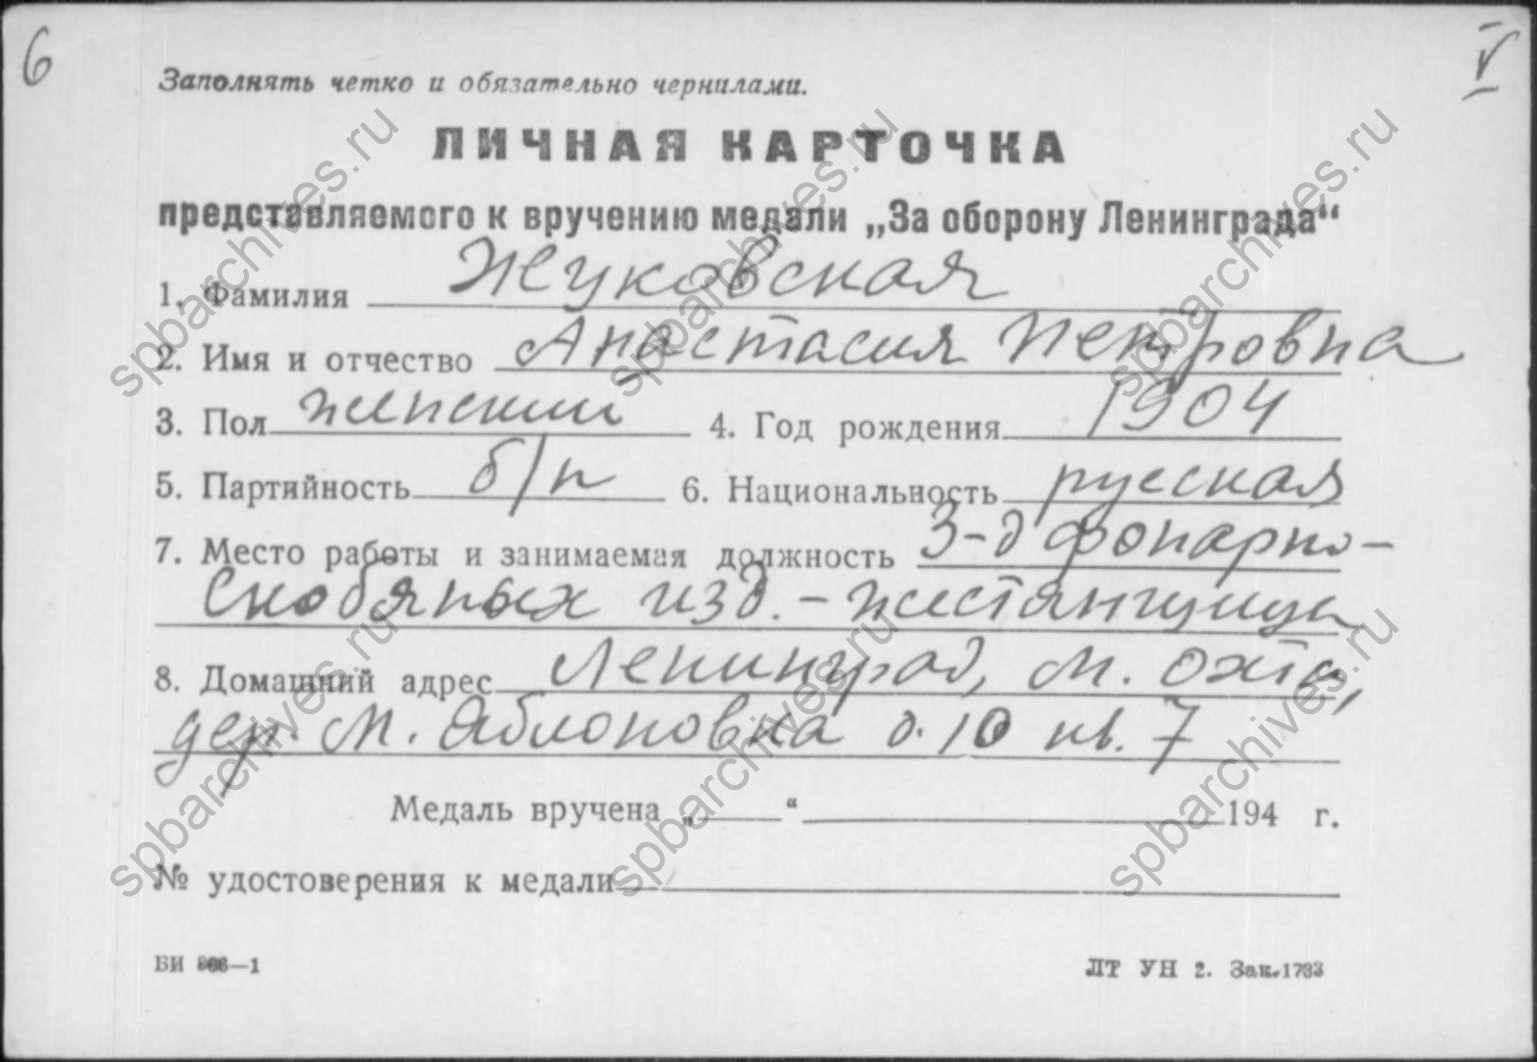 6
V
Заполнять четко и обязательно чернилами.
ЛИЧНАЯ КАРТОЧКА
представляемого к вручению медали „За оборону Ленинграда“
1. Фамилия Жуковская
2. Имя и отчество Анастасия Петровна
3. Пол женский 4. Год рождения 1904
5. Партийность б/п 6. Национальность русская
7. Место работы и занимаемая должность З-д фонарно-
скобяных изд. - жестянщица
8. Домашний адрес Ленинград, М. Охта,
дер. М. Яблоновка д. 10 кв. 7
Медаль вручена „ “ 194 г.
№ удостоверения к медали
БИ ЛТ УН 2. Зак.1733
spbarchives.ru
spbarchives.ru
spbarchives.ru
spbarchives.ru
spbarchives.ru
spbarchives.ru